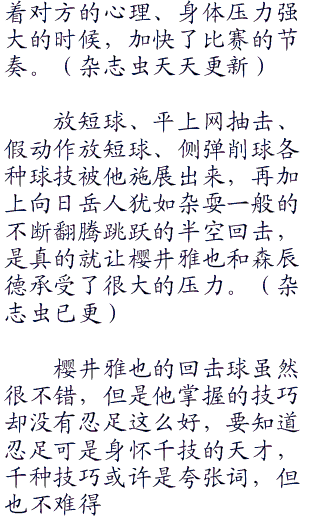 着对方的心理、身体压力强
大的时候，加快了比赛的节
奏。（杂志虫天天更新）
放短球、平上网抽击、
假动作放短球、侧弹削球各
种球技被他施展出来，再加
上向日岳人犹如杂耍一般的
不断翻腾跳跃的半空回击，
是真的就让樱井雅也和森辰
德承受了很大的压力。（杂
志虫已更）
樱井雅也的回击球虽然
很不错，但是他掌握的技巧
却没有忍足这么好，要知道
忍足可是身怀千技的天才，
千种技巧或许是夸张词，但
也不难得